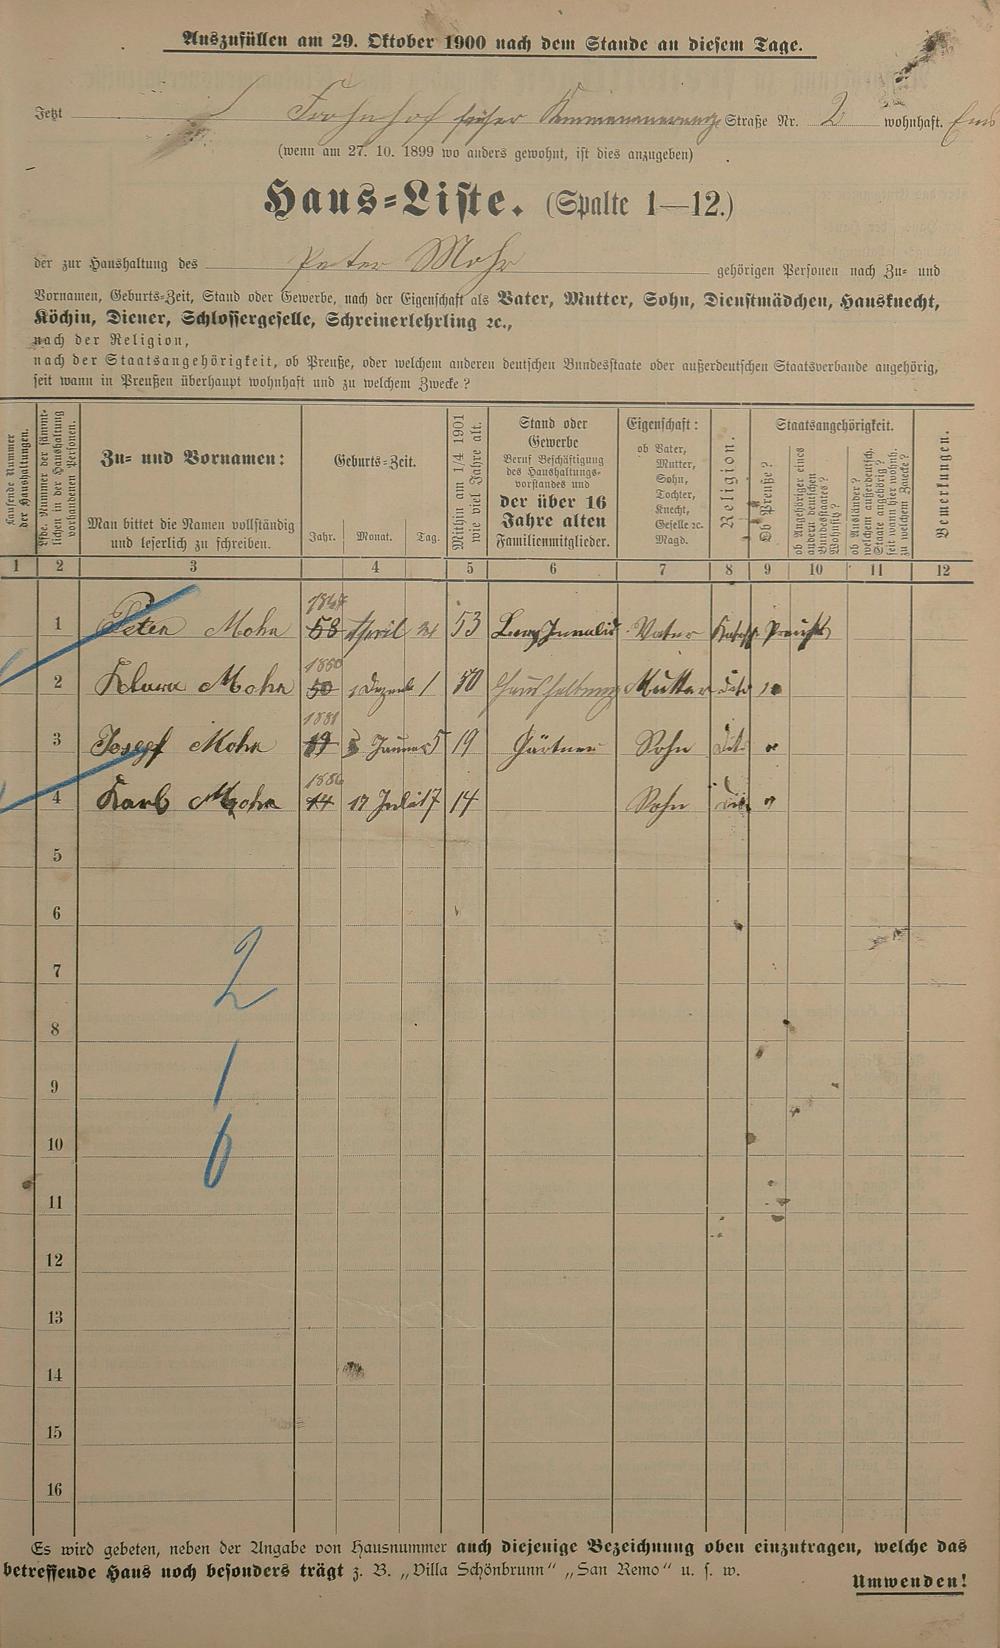 Auszufüllen am 29. Oktober 1900 nach dem Stande an diesem Tage.
Jetzt Frohnhof früher Straße Nr. 2 wohnhaft. Ems
(wenn am 27. 10. 1899 wo anders gewohnt, ist dies anzugeben)
Haus-Liste. (Spalte 1—12.)
der zur Haushaltung des Peter Mohr gehörigen Personen nach Zu- und
Vornamen, Geburts-Zeit, Stand oder Gewerbe, nach der Eigenschaft als Vater, Mutter, Sohn, Dienstmädchen, Hausknecht,
Köchin, Diener, Schlossergeselle, Schreinerlehrling ꝛc.,
nach der Religion,
nach der Staatsangehörigkeit, ob Preuße, oder welchem anderen deutschen Bundesstaate oder außerdeutschen Staatsverbande angehörig,
seit wann in Preußen überhaupt wohnhaft und zu welchem Zwecke?
Laufende Nummer der Haushaltungen.
Lfde. Nummer der sämmtlichen in der Haushaltung vorhandenen Personen.
Zu- und Vornamen:
Man bittet die Namen vollständig
und leserlich zu schreiben.
Geburts-Zeit.
Jahr. Monat. Tag.
Mithin am 1/4 1901 wie viel Jahre alt.
Stand oder
Gewerbe
Beruf Beschäftigung
des Haushaltungs-
vorstandes und
der über 16
Jahre alten
Familienmitglieder.
Eigenschaft:
ob Vater,
Mutter,
Sohn,
Tochter,
Knecht,
Geselle ꝛc.
Magd.
Religion.
Staatsangehörigkeit.
Ob Preuße?
ob Angehöriger eines anderen deutschen Bundesstaates? Wohnsitz?
ob Ausländer? welchem außerdeutsch. Staate angehörig? seit wann hier wohnh. zu welchem Zwecke?
Bemerkungen.
1 2 3 4 5 6 7 8 9 10 11 12
1847
1 Peter Mohr 53 April 53 Berg Invalid Vater Kathol. Preuße
1850
2 Klara Mohr 50 1 Dezemb 1 50 Haushaltung Mutter dito "
1881
3 Josepf Mohr 19 5 Januar 5 19 Gärtner Sohn dito "
1886
4 Karl Mohr 14 17 Juli 17 14 Sohn dito "
5
6
7
2
8
9
1
10
6
11
12
13
14
15
16
Es wird gebeten, neben der Angabe von Hausnummer auch diejenige Bezeichnung oben einzutragen, welche das
betreffende Haus noch besonders trägt z. B. „Villa Schönbrunn" „San Remo" u. s. w.
Umwenden!